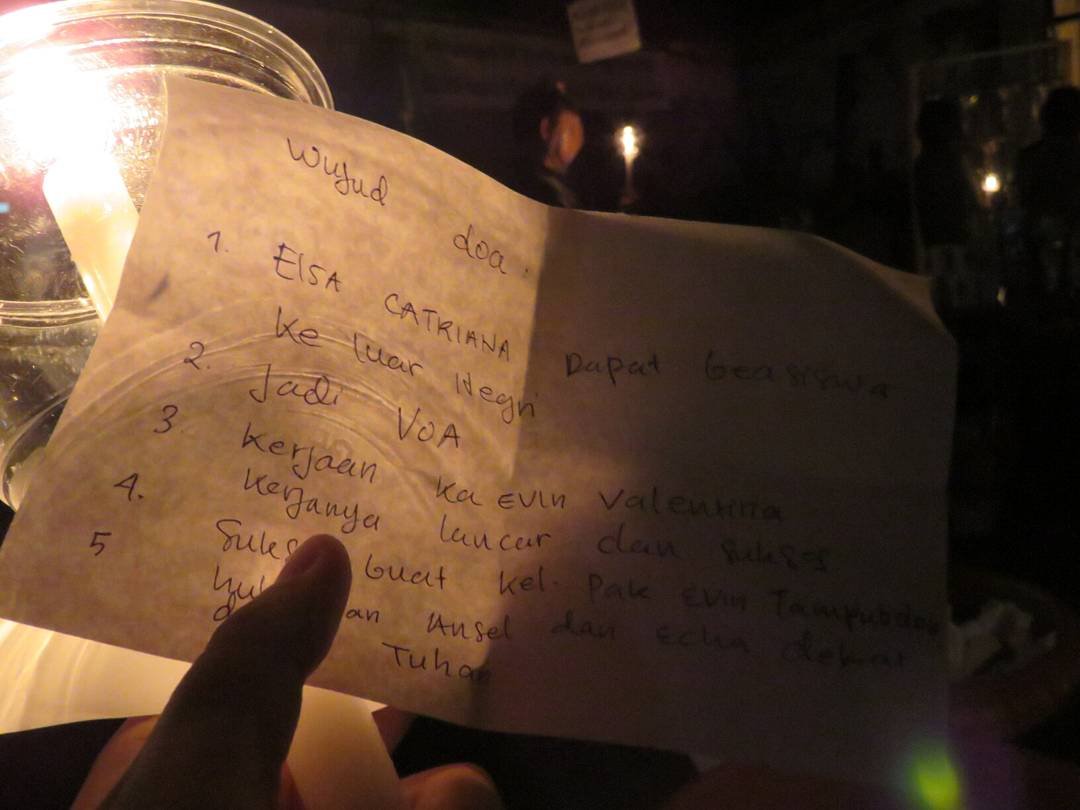 Wujud doa.
1. ElSA CATRIANA Dapat beasiswa
Ke luar Negri
2. Jadi VOA
3 Kerjaan ka EVIN Valentina
4. Kerjanya lancar dan sukses
5 buat Kel. Pak EVIN Tampubolon
Ansel dan Echa dekat
Tuhan